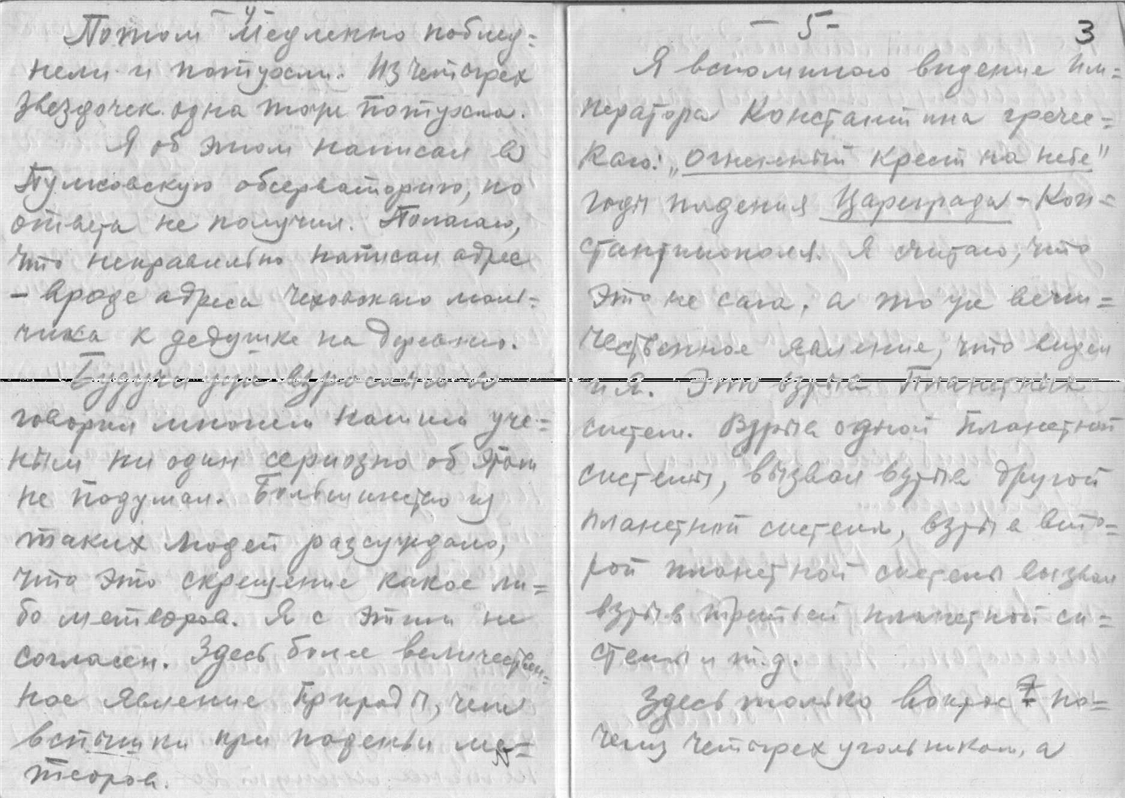 Потом медленно поблед=
нели и потухли. Из четырех
звездочек одна тоже потухла.
Я об этом написал в
Пулковскую обсерваторию, но
ответа не получил. Полагаю,
что неправильно написал адрес
– вроде адреса Чеховскаго маль=
чика к дедушке на деревню.
Будучи уже взрослым
говорил многим нашим уче=
ным ни один сериозно об этом
не подумал. Большинство из
таких людей разсуждало,
что это скрещение какое ли=
бо метеоров. Я с этим не
согласен. Здесь более величествен=
ное явление Природы, чем
вспышки при падении ме=
теоров.
-5- 3
Я вспоминаю видение им=
ператора Константина гречес=
каго: „Огненный крест на небе"
годы падения Цареграда – Кон=
стантинополя. Я считаю, что
это не сага, а то же вели=
чественное явление, что видел
и я. Это взрыв Планетных
систем. Взрыв одной планетной
системы, вызвал взрыв другой
планетной системы, взрыв вто=
рой планетной системы вызвал
взрыв третьей планетной си=
стемы и т.д.
Здесь только вопрос по=
чему четырехугольником, а